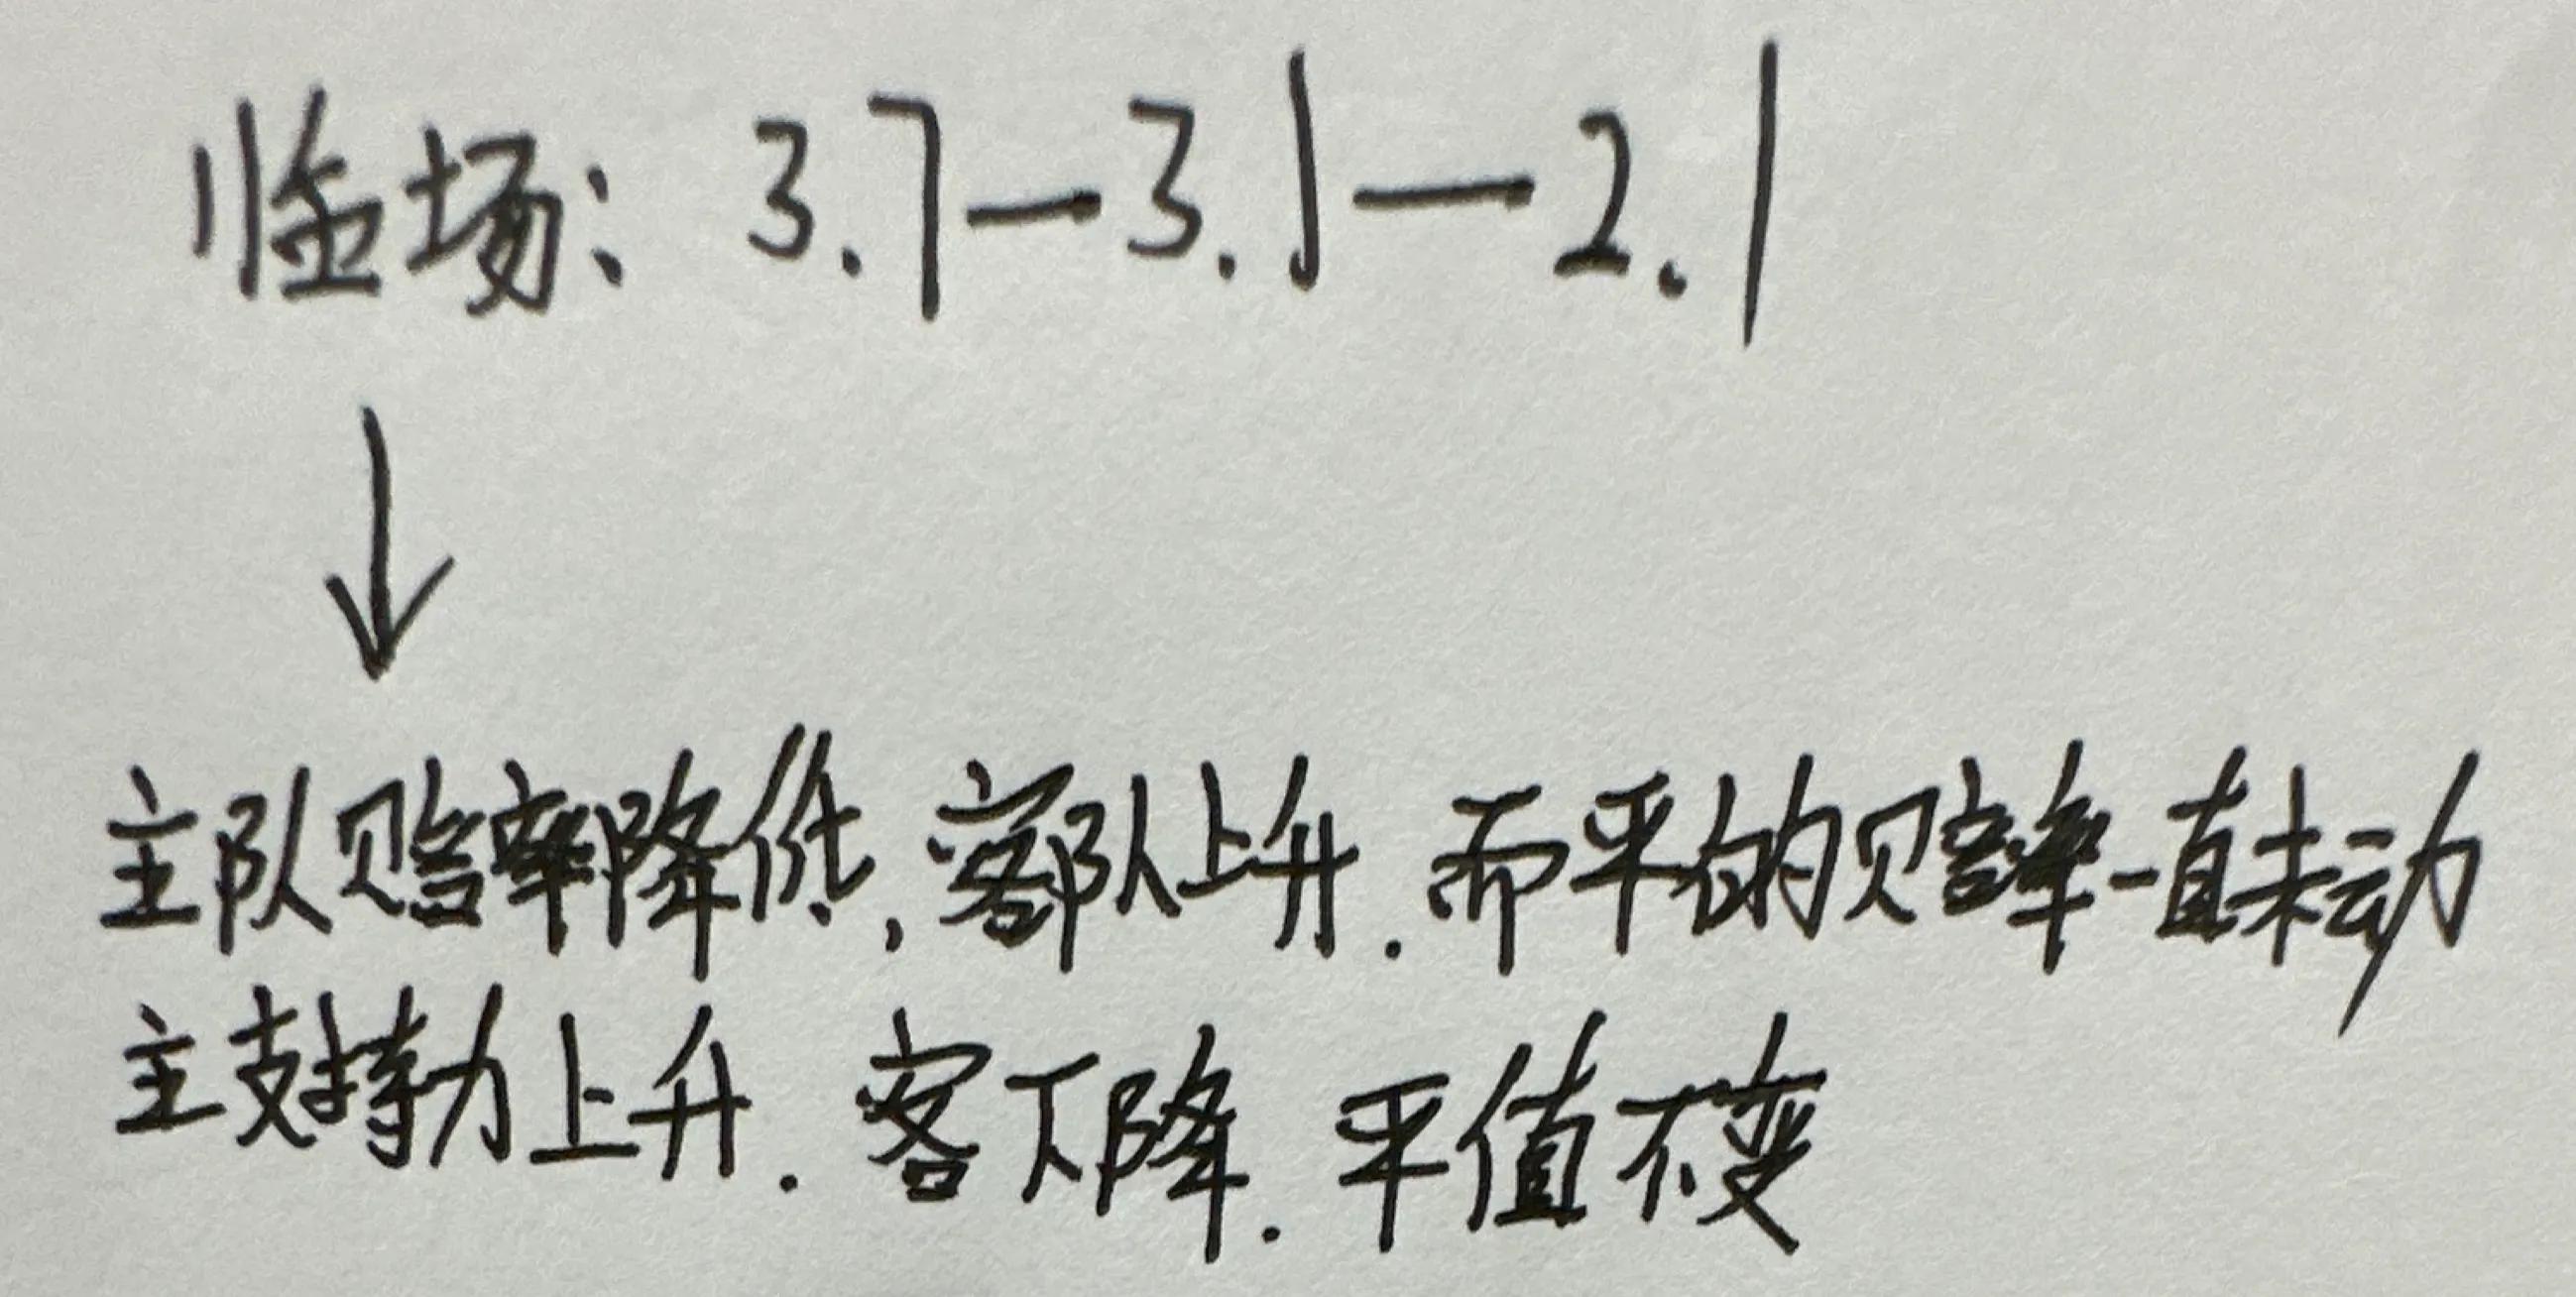 临场: 3.7—3.1—2.1
↓
主队赔率降低,客队上升.而平的赔率一直未动
主支持力上升.客下降.平值不变